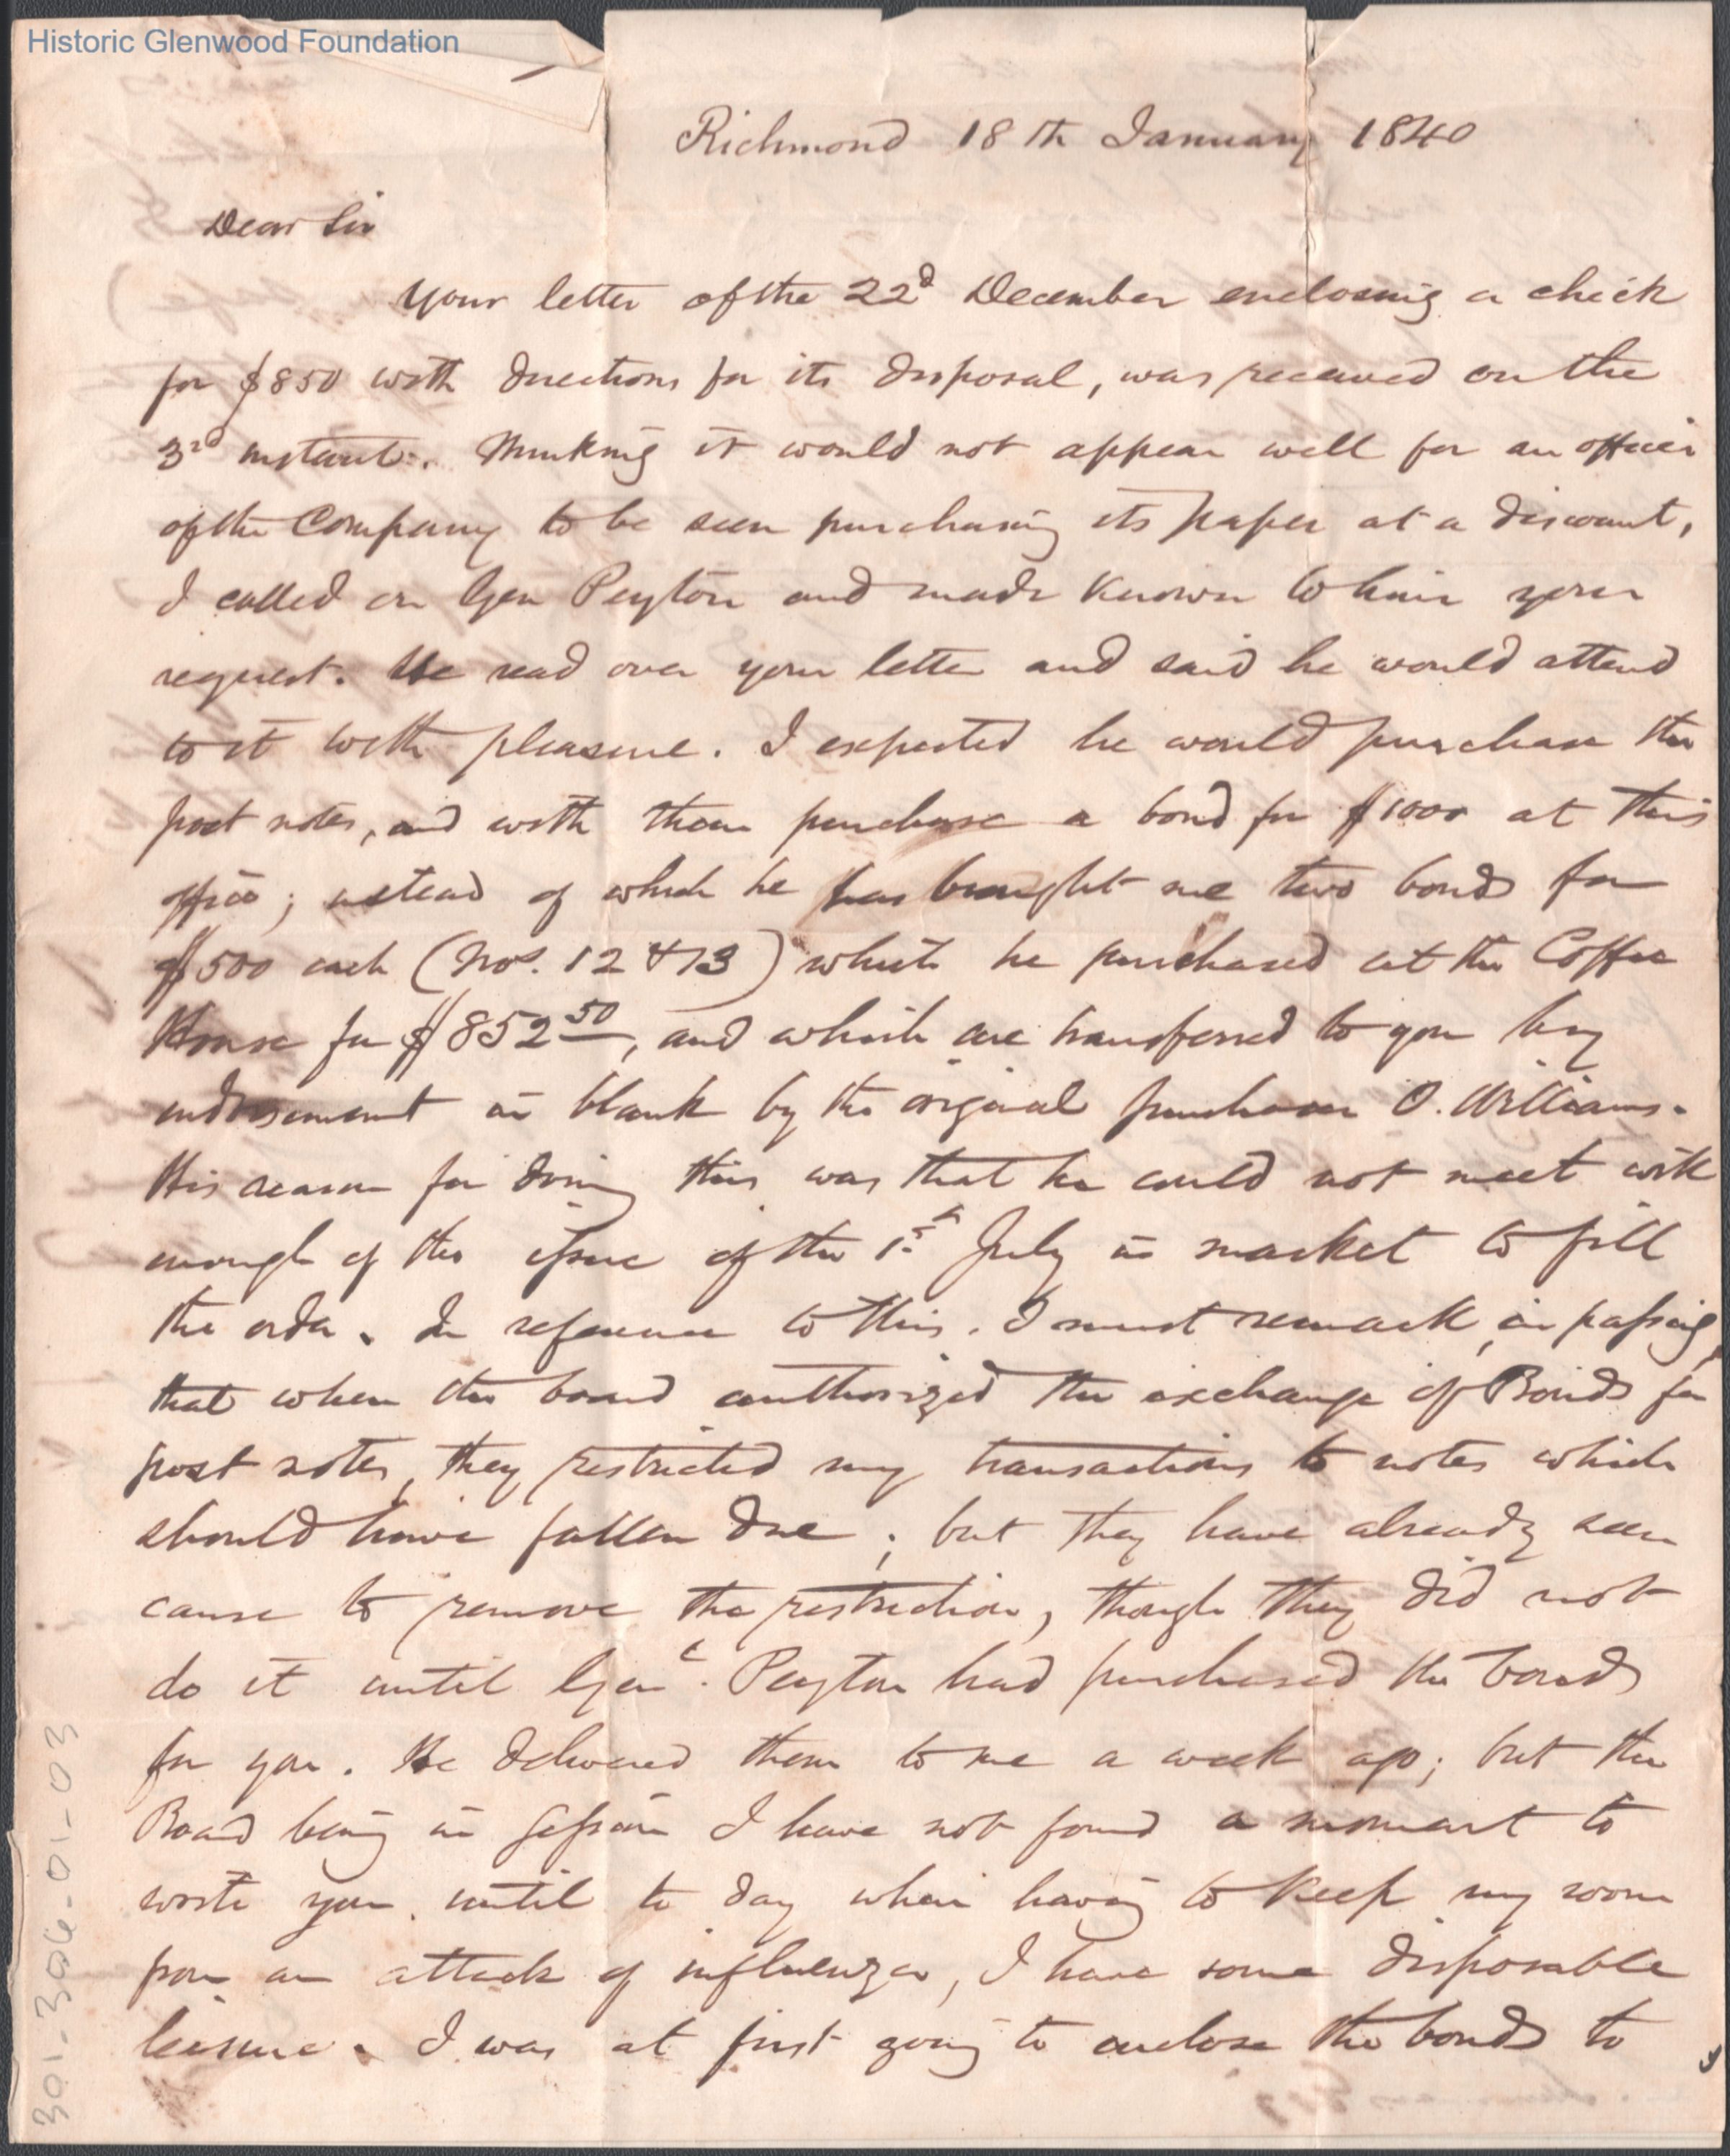 Historic Glenwood Foundation
Richmond 18th January 1840
Dear Sir
Your letter of the 22d December enclosing a check
for $850 with directions for its disposal, was received on the
3rd instant. Thinking it would not appear well for an officer
of the Company to be seen purchasing its paper at a discount,
I called on Gen Peyton and made known to him your
request. He read over your letter and said he would attend
to it with pleasure. I expected he would purchase the
post notes, and with them purchase a bond for $1000 at this
office; instead of which he has brought me two bonds for
$500 each (Nos. 12 & 13) which he purchased at the Coffee
House for $852 50, and which are transferred to you by
endorsement in blank by the original purchaser O. Williams.
His reason for doing this was that he could not meet with
enough of the issue of the 1st July in market to fill
the order. In reference to this, I must remark, in passing,
that when the board authorized the exchange of Bonds for
post notes, they restricted my transactions to notes which
should have fallen due; but they have already seen
cause to remove the restriction, though they did not
do it until Genl. Peyton had purchased the bonds
for you. He delivered them to me a week ago; but the
Board being in session I have not found a moment to
write you until to day when having to keep my room
from an attack of influenza, I have some disposable
leisure. I was at first going to enclose the bonds to
301-306-01-03